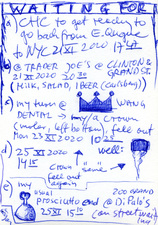 WAITING FOR
a) CHC to get ready to
go back from E. Quogue
to NYC 21 XI 2020 17
b) @ TRADER JOE'S @ CLINTON &
21 XI 2020 20 30 GRAND ST
(MILK, SALAD, 1 BEER
c) my turn @ WANG
DENTAL → a crown
(molar, left bottom), fell out
Mon 23 XI 2020 10
d) 25 XI 2020 well:
14 15 crown "same"
fell out
again
e) my usual 200 GRAND
prosciutto and @ Di Palo's
25 XI 15 15 (on street wait
line)